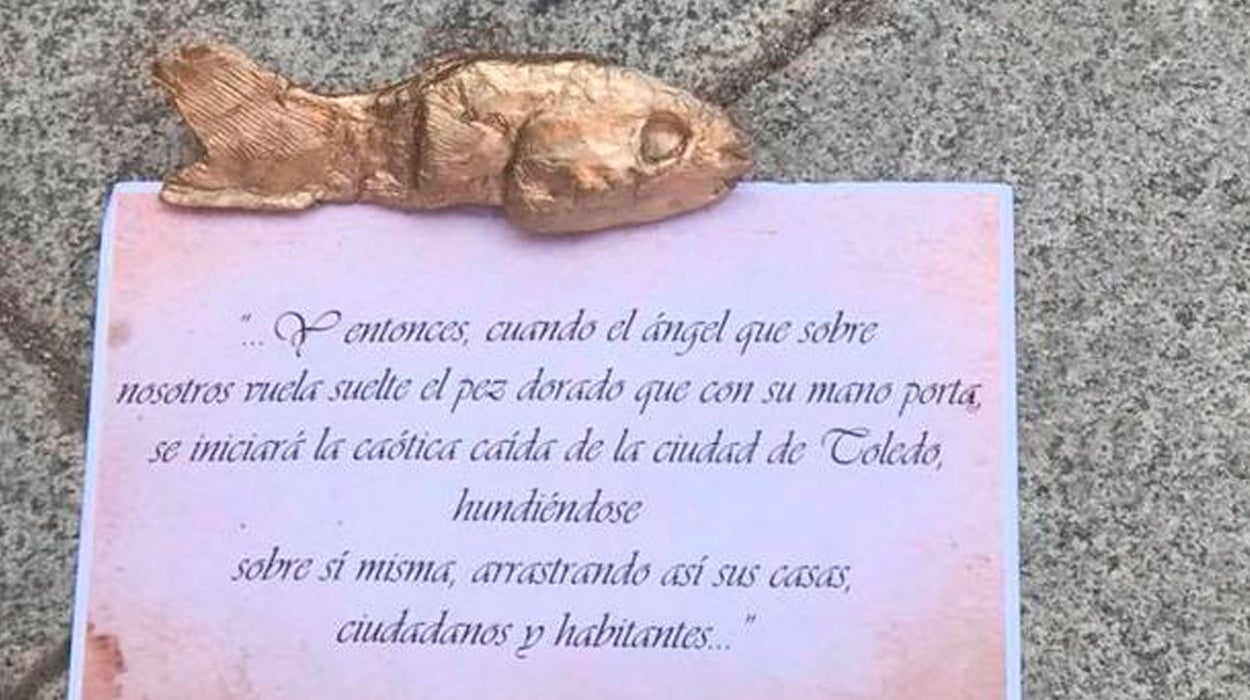 "... Y entonces, cuando el ángel que sobre
nosotros vuela suelte el pez dorado que con su mano porta,
se iniciará la caótica caída de la ciudad de Toledo,
hundiéndose
sobre sí misma, arrastrando así sus casas,
ciudadanos y habitantes..."